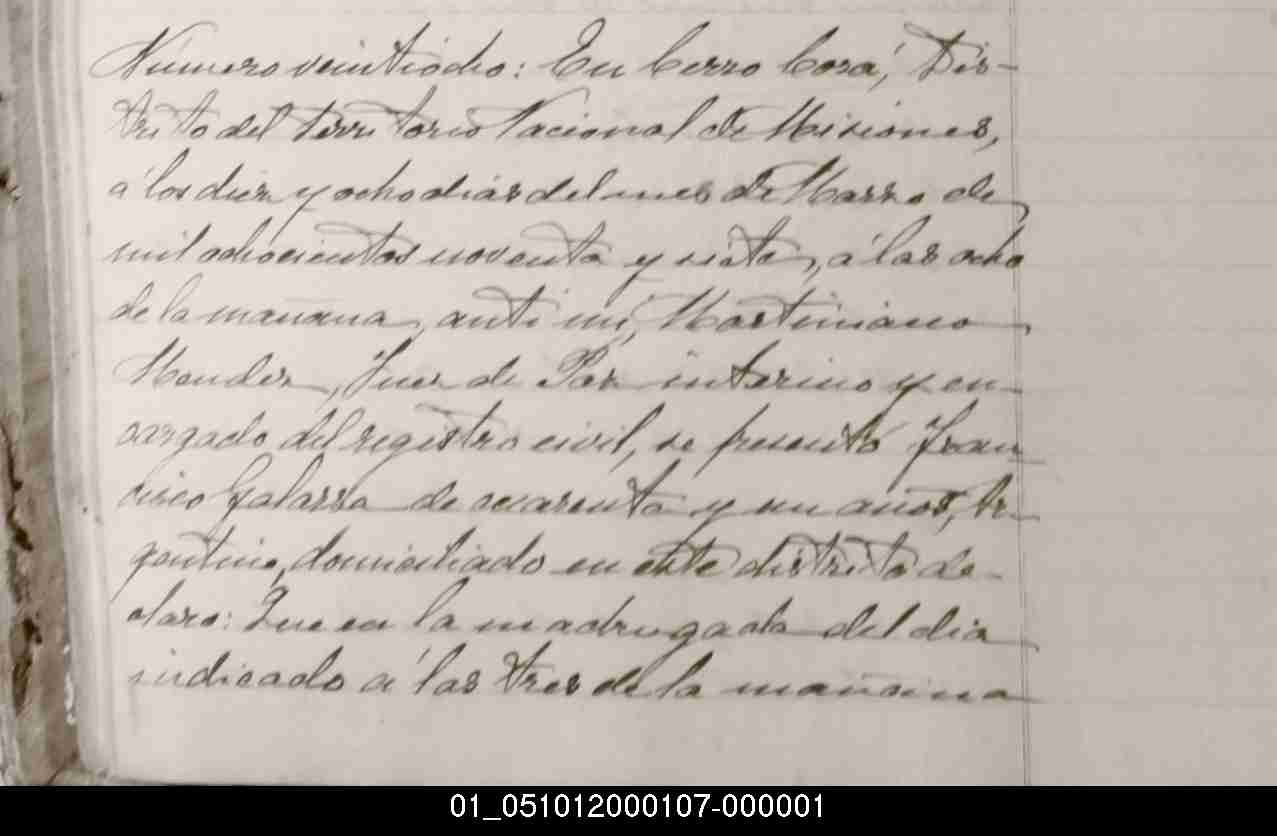 Número veintiocho: En Cerro Corá, Dis-
trito del territorio Nacional de Misiones,
á los diez y ocho dias del mes de Marzo de
mil ochocientos noventa y siete, á las ocho
de la mañana, ante mi, Martiniano
Mendez, Juez de Paz interino y en-
cargado del registro civil, se presentó Fran
cisco Galarza de cuarenta y un años, Ar-
gentino, domiciliado en este distrito de-
claro: Que en la madrugada del dia
indicado á las tres de la mañana
01_051012000107-000001